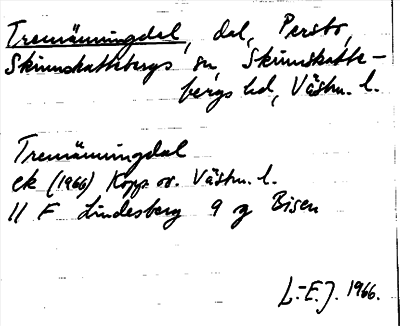 Tremänningdal, dal, Persbo,
Skinnskattebergs sn, Skinnskatte-
bergs hd, Västm. l.
Tremänningdal
ek (1966) Kopp. o. Västm. l.
11 F Lindesberg 9 g Bisen
L.-E. J. 1966.